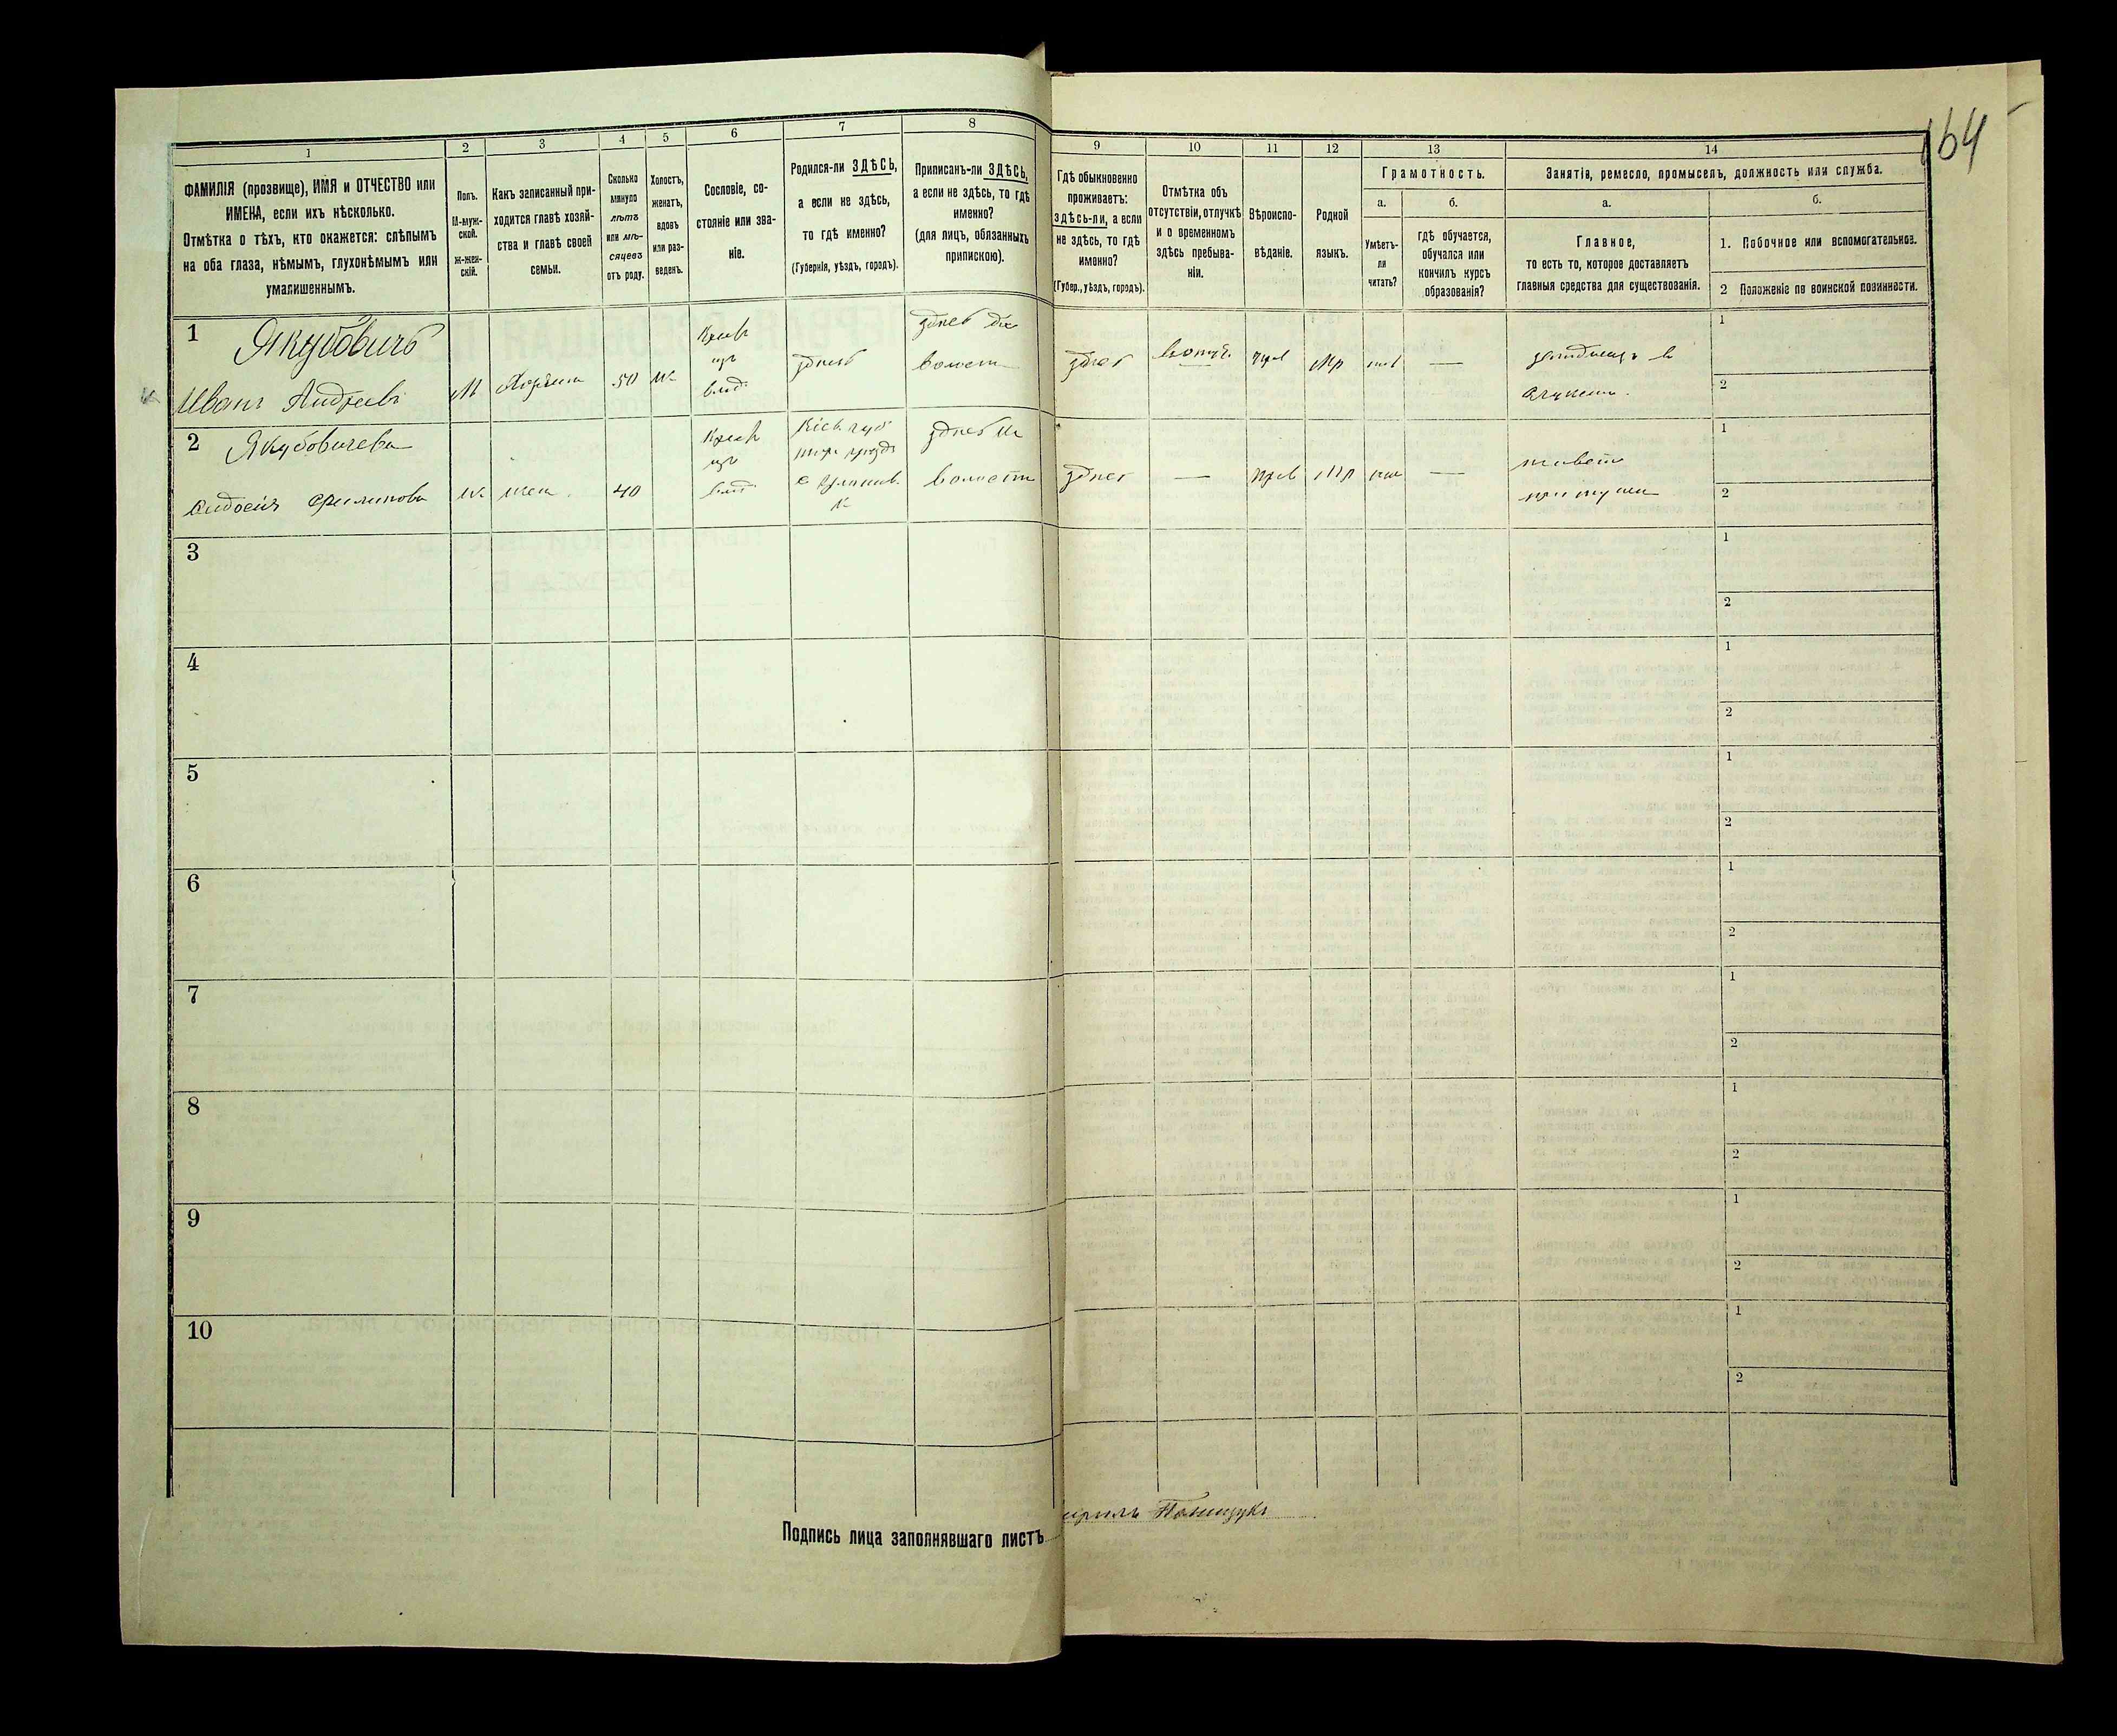 164
1
2
3
4
5
6
7
8
9
10
11
12
13
14
ФАМИЛІЯ (прозвище), ИМЯ и ОТЧЕСТВО или
ИМЕНА, если ихъ нѣсколько.
Отмѣтка о тѣхъ, кто окажется: слѣпымъ
на оба глаза, нѣмымъ, глухонѣмымъ или
умалишеннымъ.
Полъ.
М-муж-
ской.
Ж-жен-
скій.
Какъ записанный при-
ходится главѣ хозяй-
ства и главѣ своей
семьи.
Сколько
минуло
лѣтъ
или мѣ-
сяцевъ
отъ роду.
Холостъ,
женатъ,
вдовъ
или раз-
веденъ.
Сословіе, со-
стояніе или зва-
ніе.
Родился-ли ЗДѢСЬ,
а если не здѣсь,
то гдѣ именно?
(Губернія, уѣздъ, городъ).
Приписанъ-ли ЗДѢСЬ,
а если не здѣсь, то гдѣ
именно?
(для лицъ, обязанныхъ
припискою).
Гдѣ обыкновенно
проживаетъ:
здѣсь-ли, а если
не здѣсь, то гдѣ
именно?
(Губер., уѣздъ, городъ).
Отмѣтка объ
отсутствіи, отлучкѣ
и о временномъ
здѣсь пребыва-
ніи.
Вѣроиспо-
вѣданіе.
Родной
языкъ.
Грамотность.
а.
б.
Умѣетъ-
ли
читать?
гдѣ обучается,
обучался или
кончилъ курсъ
образованія?
Занятія, ремесло, промыселъ, должность или служба.
а.
б.
Главное,
то есть то, которое доставляетъ
главныя средства для существованія.
1. Побочное или вспомогательное.
2 Положеніе по воинской повинности.
1
Якубовичъ
Иванъ Андреевъ
М
Хозяинъ
50
ж
Крест
изъ
влад.
здѣсь
здѣсь
волости
здѣсь
прав
Мр
1
2
2
Якубовичева
Евдосія Филипова
ж
жена
40
Крест
изъ
влад
Кіев. губ
здѣсь
волости
здѣсь
—
прав
Мр
—
1
2
3
1
2
4
1
2
5
1
2
6
1
2
7
1
2
8
1
2
9
1
2
10
1
2
Подпись лица заполнявшаго листъ